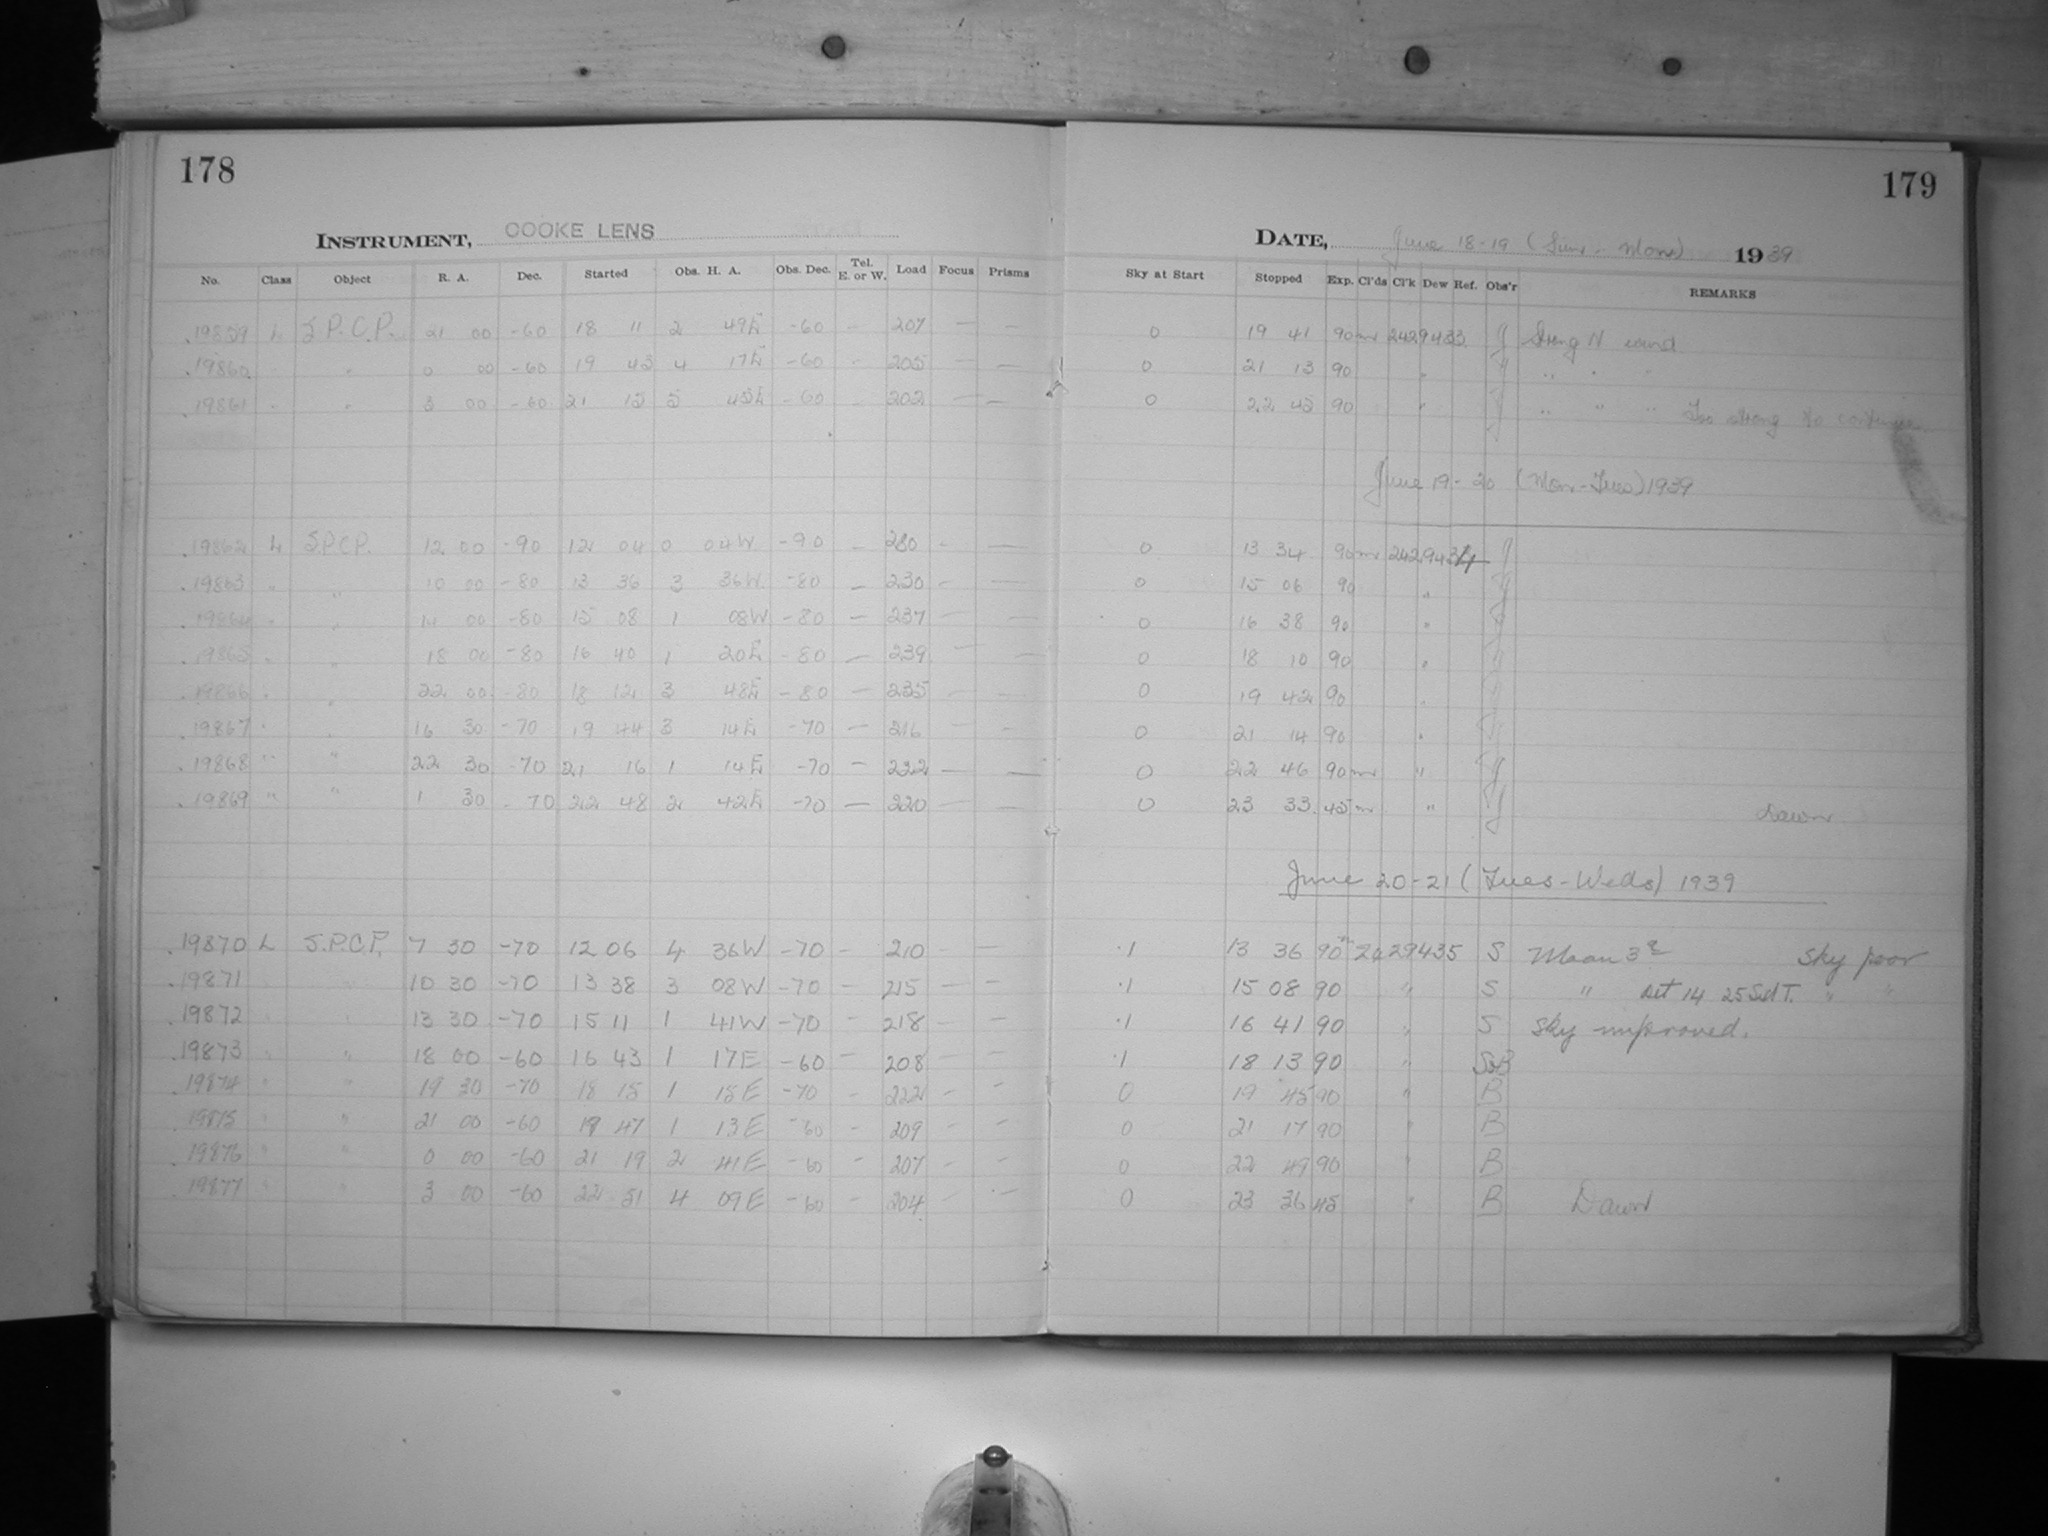 178
179
INSTRUMENT, COOKE LENS
DATE, June 18-19 (Sun. - Mon) 1939
No. Class Object R. A. Dec. Started Obs. H. A. Obs. Dec. Tel. E. or W. Load Focus Prisms Sky at Start Stopped Exp. Cl'ds Cl'k Dew Ref. Obs'r REMARKS
19859 L S.P.C.P. 21 00 -60 18 11 2 49E -60 - 207 - - 0 19 41 90m 2429433 J Strong N wind
19860 " " 0 00 -60 19 43 4 17E -60 - 205 - 0 21 13 90 " J " " "
19861 " " 3 00 -60 21 15 5 45E -60 - 202 - - 0 22 45 90 " J " " " Too strong to continue
June 19-20 (Mon-Tues) 1939
19862 L S.P.C.P. 12 00 -90 12 04 0 04W -90 - 280 - - 0 13 34 90m 2429434 J
19863 " " 10 00 -80 13 36 3 36W -80 - 230 - - 0 15 06 90 " J
19864 " " 14 00 -80 15 08 1 08W -80 - 237 - - 0 16 38 90 " J
19865 " " 18 00 -80 16 40 1 20E -80 - 239 - - 0 18 10 90 " J
19866 " " 22 00 -80 18 12 3 48E -80 - 235 - - 0 19 42 90 " J
19867 " " 16 30 -70 19 44 3 14E -70 - 216 - - 0 21 14 90 " J
19868 " " 22 30 -70 21 16 1 14E -70 - 222 - - 0 22 46 90m " J
19869 " " 1 30 -70 22 48 2 42E -70 - 220 - - 0 23 33 45m " J Dawn
June 20-21 (Tues-Weds) 1939
19870 L S.P.C.P. 7 30 -70 12 06 4 36W -70 - 210 - - .1 13 36 90m 2429435 S Moon 3d Sky poor
19871 " " 10 30 -70 13 38 3 08W -70 - 215 - - .1 15 08 90 " S " set 14 25 Sid T. " "
19872 " " 13 30 -70 15 11 1 41W -70 - 218 - - .1 16 41 90 " S Sky improved.
19873 " " 18 00 -60 16 43 1 17E -60 - 208 - - .1 18 13 90 " S&B
19874 " " 19 30 -70 18 15 1 15E -70 - 222 - - 0 19 45 90 " B
19875 " " 21 00 -60 19 47 1 13E -60 - 209 - - 0 21 17 90 " B
19876 " " 0 00 -60 21 19 2 41E -60 - 207 - - 0 22 49 90 " B
19877 " " 3 00 -60 22 51 4 09E -60 - 204 - - 0 23 36 45 " B Dawn